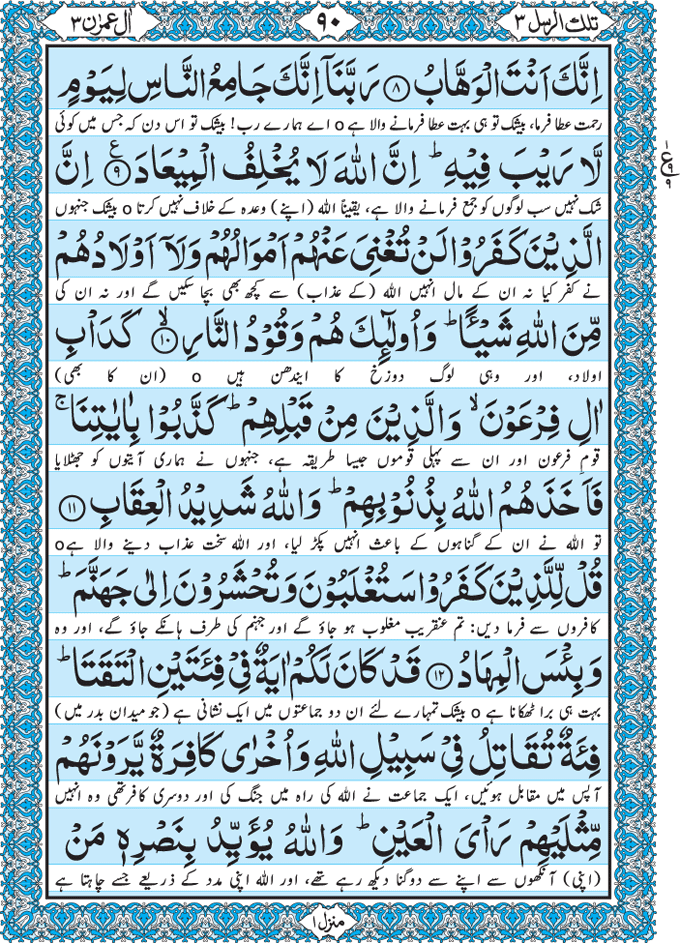 تلك الرسل ٣
٩٠
اٰل عمرٰن ٣
اِنَّكَ اَنْتَ الْوَهَّابُ ﴿۸﴾ رَبَّنَاۤ اِنَّكَ جَامِعُ النَّاسِ لِيَوْمٍ
رحمت عطا فرما، بیشک تو ہی بہت عطا فرمانے والا ہے o اے ہمارے رب! بیشک تو اس دن کہ جس میں کوئی
لَّا رَيْبَ فِيْهِ ؕ اِنَّ اللّٰهَ لَا يُخْلِفُ الْمِيْعَادَ ﴿۹﴾ ع اِنَّ
شک نہیں سب لوگوں کو جمع فرمانے والا ہے، یقیناً اللہ (اپنے) وعدہ کے خلاف نہیں کرتا o بیشک جنہوں
الَّذِيْنَ كَفَرُوْا لَنْ تُغْنِىَ عَنْهُمْ اَمْوَالُهُمْ وَلَاۤ اَوْلَادُهُمْ
نے کفر کیا نہ ان کے مال انہیں اللہ (کے عذاب) سے کچھ بھی بچا سکیں گے اور نہ ان کی
مِّنَ اللّٰهِ شَيْـًٔا ؕ وَاُولٰٓئِكَ هُمْ وَقُوْدُ النَّارِ ﴿۱۰﴾ ۙ كَدَاْبِ
اولاد، اور وہی لوگ دوزخ کا ایندھن ہیں o (ان کا بھی)
اٰلِ فِرْعَوْنَ ۙ وَالَّذِيْنَ مِنْ قَبْلِهِمْ ؕ كَذَّبُوْا بِاٰيٰتِنَا ۚ
قومِ فرعون اور ان سے پہلی قوموں جیسا طریقہ ہے، جنہوں نے ہماری آیتوں کو جھٹلایا
فَاَخَذَهُمُ اللّٰهُ بِذُنُوْبِهِمْ ؕ وَاللّٰهُ شَدِيْدُ الْعِقَابِ ﴿۱۱﴾
تو اللہ نے ان کے گناہوں کے باعث انہیں پکڑ لیا، اور اللہ سخت عذاب دینے والا ہے o
قُلْ لِّلَّذِيْنَ كَفَرُوْا سَتُغْلَبُوْنَ وَتُحْشَرُوْنَ اِلٰى جَهَنَّمَ ؕ
کافروں سے فرما دیں: تم عنقریب مغلوب ہو جاؤ گے اور جہنم کی طرف ہانکے جاؤ گے، اور وہ
وَبِئْسَ الْمِهَادُ ﴿۱۲﴾ قَدْ كَانَ لَكُمْ اٰيَةٌ فِىْ فِئَتَيْنِ الْتَقَتَا ؕ
بہت ہی برا ٹھکانا ہے o بیشک تمہارے لئے ان دو جماعتوں میں ایک نشانی ہے (جو میدان بدر میں)
فِئَةٌ تُقَاتِلُ فِىْ سَبِيْلِ اللّٰهِ وَاُخْرٰى كَافِرَةٌ يَّرَوْنَهُمْ
آپس میں مقابل ہوئیں، ایک جماعت نے اللہ کی راہ میں جنگ کی اور دوسری کافر تھی وہ انہیں
مِّثْلَيْهِمْ رَاْىَ الْعَيْنِ ؕ وَاللّٰهُ يُؤَيِّدُ بِنَصْرِهٖ مَنْ
(اپنی) آنکھوں سے اپنے سے دوگنا دیکھ رہے تھے، اور اللہ اپنی مدد کے ذریعے جسے چاہتا ہے
منزل ۱